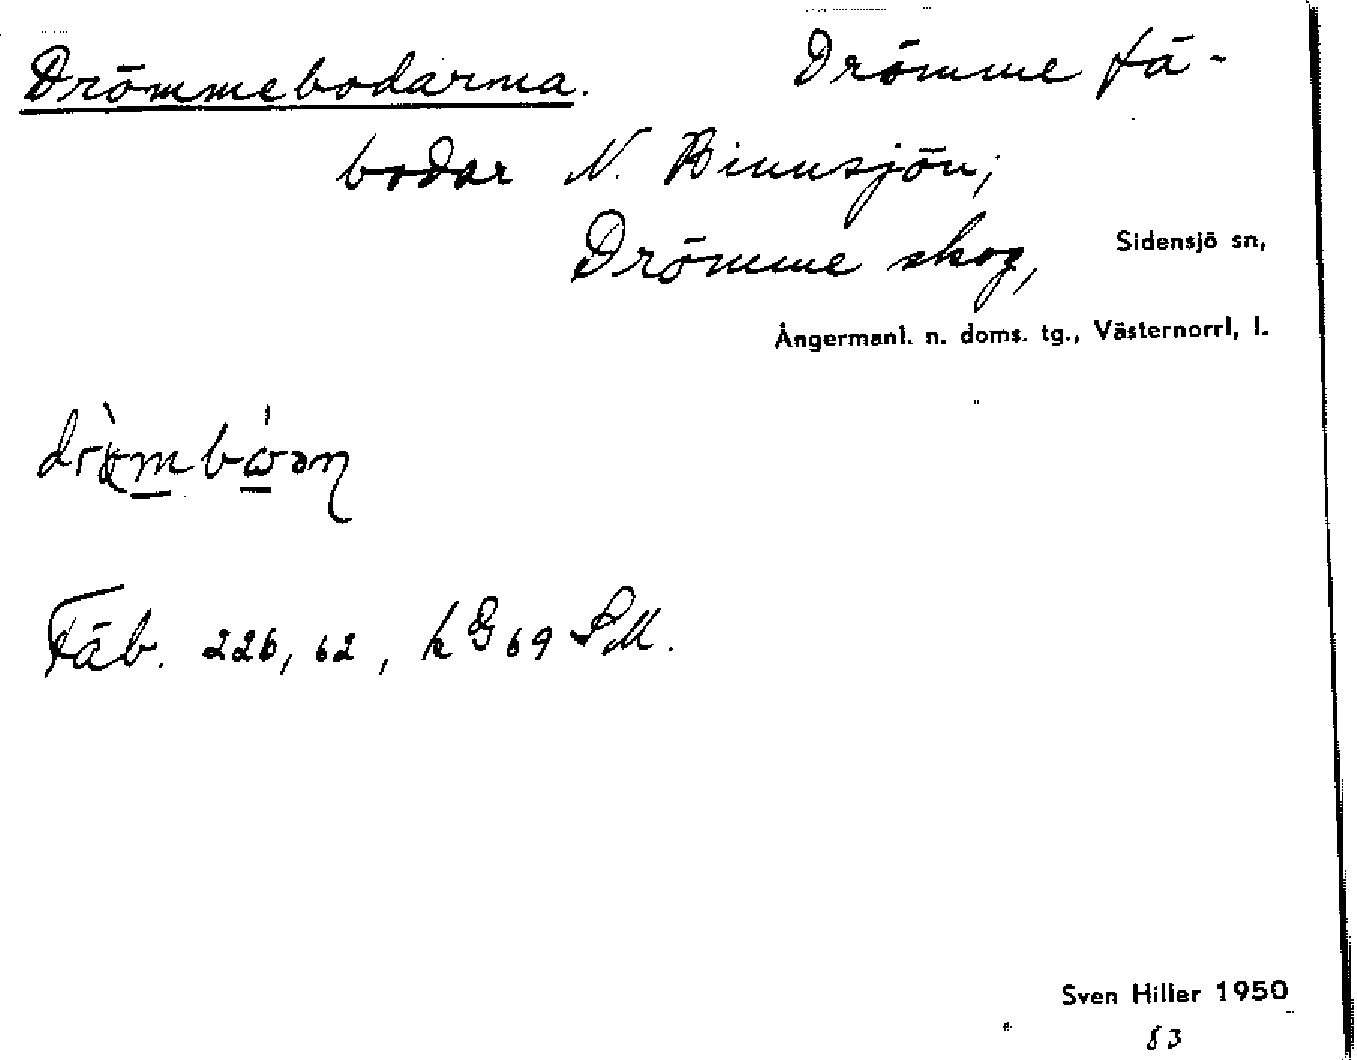 Drömmebodarna. Drömme fä-
bodar N. Binnsjön;
Drömme skog, Sidensjö sn,
Ångermanl. n. doms. tg., Västernorrl, l.
Fäb. 226, 62, k G 69 SM.
Sven Hiller 1950
83